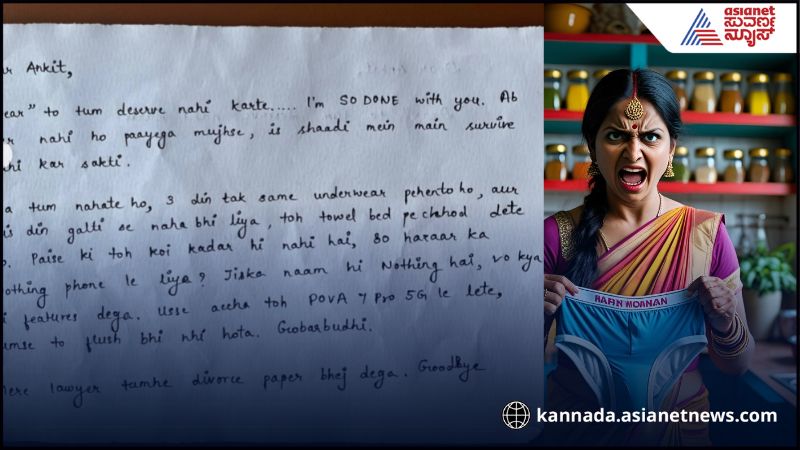 ar Ankit,
ear" to tum deserve nahi karte..... I'm SO DONE with you. Ab
r nahi ho paayega mujhse, is shaadi mein main survive
hi kar sakti.
a tum nahate ho, 3 din tak same underwear pehente ho, aur
is din galti se naha bhi liya, toh towel bed pe chhod dete
. Paise ki toh koi kadar hi nahi hai, 80 hazaar ka
othing phone le liya? Jiska naam hi Nothing hai, vo kya
i features dega. Usse accha toh POVA 7 Pro 5G le lete,
umse to flush bhi nhi hota. Gobarbudhi.
Mere lawyer tumhe divorce paper bhej dega. Goodbye
asianet
ಸುವರ್ಣ
ನ್ಯೂಸ್
kannada.asianetnews.com